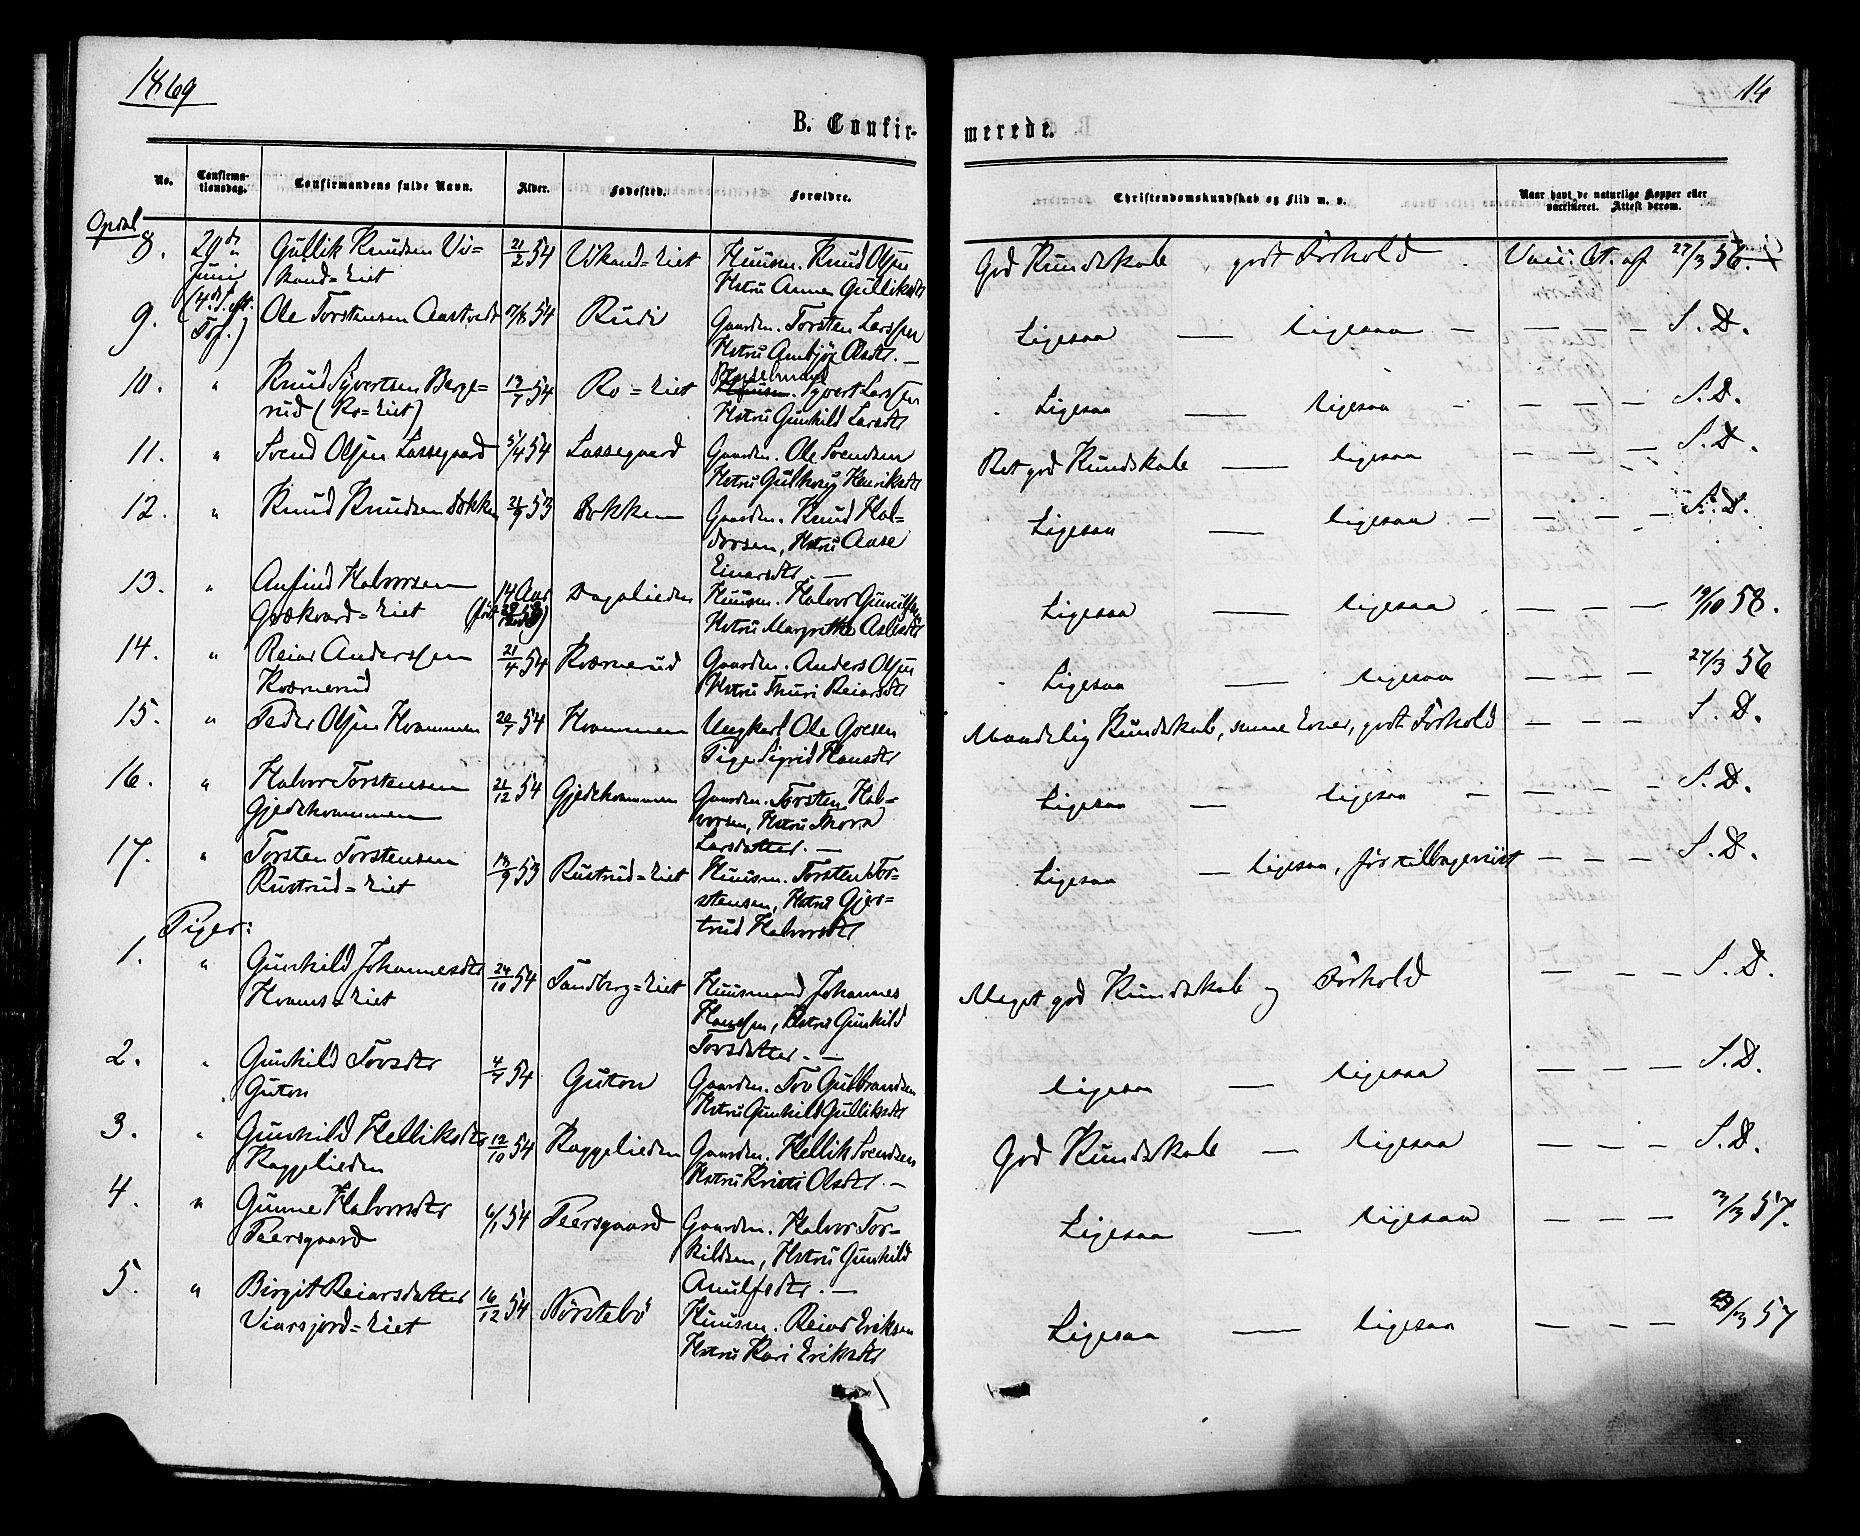 1869
14
B. Confir-
merede.
No.
Confirma-
tionsdag.
Confirmandens fulde Navn.
Alder.
Fødested.
Forældre.
Christendomskundskab og Flid m. v.
Naar havt de naturlige Kopper eller
vaccineret. Attest derom.
Opdal
8.
20de
Juni
(4de S. eft.
Tref.)
Gullik Knudsen Vi-
kand=Eiet
21/2 54
Vikand=Eiet
Huusm. Knud Olsen
Hstru Anne Gulliksdt
God Kundskab godt Forhold
Vacc. At. af 27/3 56.
9.
Ole Torstensen Aastvedt
17/8 54
Rudi
Gaardm. Torsten Larssen
Hstru Ambjør Olsdtr. —
Ligesaa — ligesaa — — — — S. D.
10.
"
Knud Syvertsen Berge-
rud (Ro=Eiet)
13/7 54
Ro=Eiet
Huusm. Syvert Larssen
Hstru Gunhild Larsdtr
Ligesaa — ligesaa — — — — S. D.
11.
"
Svend Olsen Lassegaard
5/4 54
Lassegaard
Gaardm. Ole Svendsen
Hstru Gulborg Henriksdtr
Ret god Kundskab — ligesaa — — — S. D.
12.
"
Knud Knudsen Dokken
21/9 53
Dokken
Gaardm. Knud Hal-
dorsen, Hstru Aase
Einarsdtr. —
Ligesaa — ligesaa — — — — S. D.
13.
"
Anfind Halvorsen
Grækvard=Eiet
14 Aar
Dagalieden
Huusm. Halvor Gunulfsen
Hstru Margrethe Aslesdtr
Ligesaa — ligesaa — — — 19/10 58.
14.
"
Reiar Anderssen
Kværnerud
21/4 54
Kværnerud
Gaardm. Anders Olsen
Hstru Thuri Reiarsdtr
Ligesaa — ligesaa — — — 27/3 56
15.
"
Peder Olsen Hvammen
20/7 54
Hvammen
Ungkarl Ole Goesen
Pige Sigrid Hansdtr
Maadelig Kundskab, smaa Evner, godt Forhold — — — S. D.
16.
"
Halvor Torstensen
Gjedehvammen
21/12 54
Gjedehvammen
Gaardm. Torsten Hal-
vorsen, Hstru Thora
Larsdatter. —
Ligesaa — ligesaa — — — — S. D.
17.
"
Torsten Torstensen
Rustrud=Eiet
13/9 53
Rustrud=Eiet
Huusm. Torsten Tor-
stensen, Hstru Gjer-
trud Halvorsdtr
Ligesaa — ligesaa, før tilbageviist — — — S. D.
Piger:
1.
"
Gunhild Johannesdtr
Hvams=Eiet
24/10 54
Sandberg=Eiet
Huusmand Johannes
Hanssen, Hstru Gunhild
Torsdatter. —
Meget god Kundskab og Forhold — — — S. D.
2.
"
Gunhild Tovsdtr
Guton
4/7 54
Guton
Gaardm. Tov Gulbrandsen
Hstru Gunhild Gulliksdtr
ligesaa — ligesaa — — — S. D.
3.
"
Gunhild Helliksdtr
Raggelieden
12/10 54
Raggelieden
Gaardm. Hellik Svendsen
Hstru Kristi Olsdtr. —
God Kundskab — ligesaa — — — S. D.
4.
"
Gunne Halvorsdtr
Peersgaard
6/1 54
Peersgaard
Gaardm. Halvor Tor-
kildsen, Hstru Gunhild
Anulfsdtr. —
Ligesaa — ligesaa — — — 3/3 57.
5.
"
Birgit Reiarsdatter
Viersjord=Eiet
16/12 54
Nørstebø
Huusm. Reiar Eriksen
Hstru Kari Eriksdtr
Ligesaa — ligesaa — — — 57